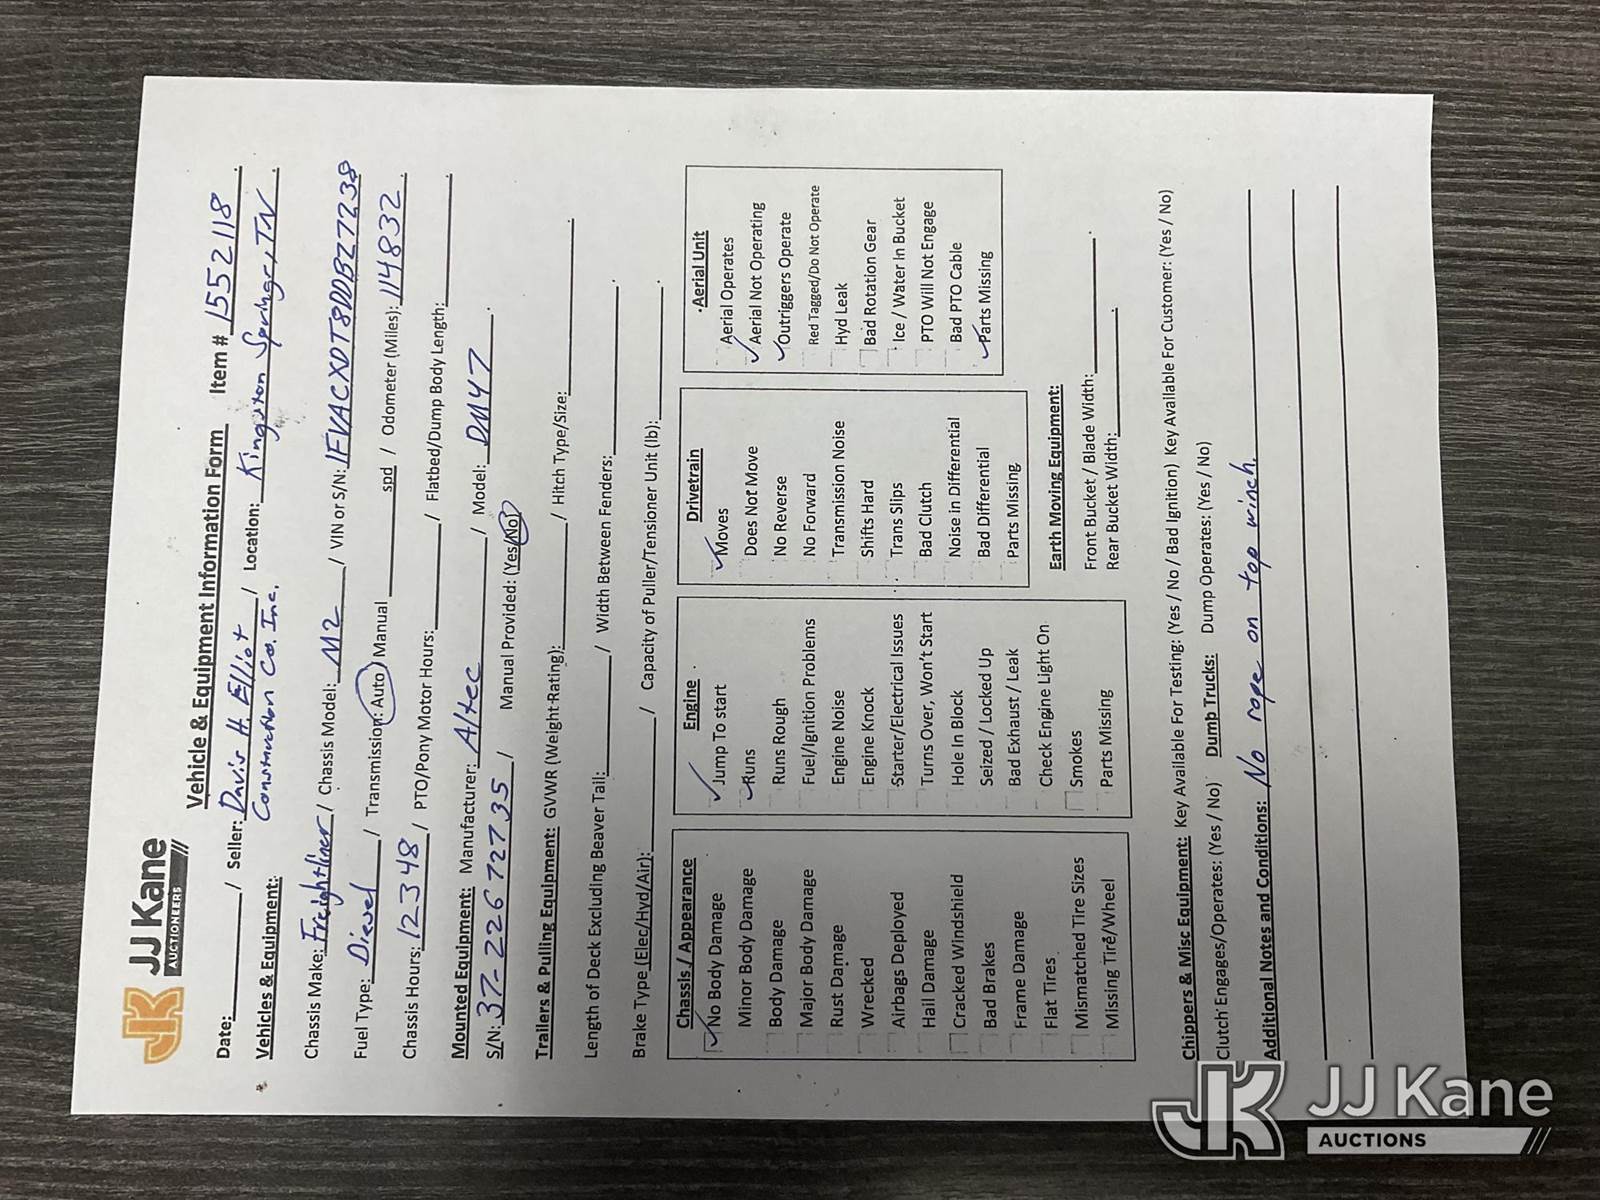 JJ Kane
AUCTIONEERS
Vehicle & Equipment Information Form Item # 1552118
Date: / Seller: Davis H Elliot / Location: Kingston Springs, TN.
Vehicles & Equipment: Construction Co. Inc.
Chassis Make: Freightliner / Chassis Model: M2 / VIN or S/N: 1FVACXDT8DDBZ7238
Fuel Type: Diesel / Transmission: Auto / Manual spd / Odometer (Miles): 114832.
Chassis Hours: 12348 / PTO/Pony Motor Hours: / Flatbed/Dump Body Length: .
Mounted Equipment: Manufacturer: Altec / Model: DM47
S/N: 37-22672735 / Manual Provided: (Yes/No) .
Trailers & Pulling Equipment: GVWR (Weight Rating): / Hitch Type/Size: .
Length of Deck Excluding Beaver Tail: / Width Between Fenders: .
Brake Type (Elec/Hyd/Air): / Capacity of Puller/Tensioner Unit (lb): .
Chassis / Appearance
No Body Damage
Minor Body Damage
Body Damage
Major Body Damage
Rust Damage
Wrecked
Airbags Deployed
Hail Damage
Cracked Windshield
Bad Brakes
Frame Damage
Flat Tires
Mismatched Tire Sizes
Missing Tire/Wheel
Engine
Jump To start
Runs
Runs Rough
Fuel/Ignition Problems
Engine Noise
Engine Knock
Starter/Electrical Issues
Turns Over, Won't Start
Hole In Block
Seized / Locked Up
Bad Exhaust / Leak
Check Engine Light On
Smokes
Parts Missing
Drivetrain
Moves
Does Not Move
No Reverse
No Forward
Transmission Noise
Shifts Hard
Trans Slips
Bad Clutch
Noise in Differential
Bad Differential
Parts Missing
Aerial Unit
Aerial Operates
Aerial Not Operating
Outriggers Operate
Red Tagged/Do Not Operate
Hyd Leak
Bad Rotation Gear
Ice / Water In Bucket
PTO Will Not Engage
Bad PTO Cable
Parts Missing
Earth Moving Equipment:
Front Bucket / Blade Width: .
Rear Bucket Width: .
Chippers & Misc Equipment: Key Available For Testing: (Yes / No / Bad Ignition) Key Available For Customer: (Yes / No)
Clutch Engages/Operates: (Yes / No) Dumb Trucks: Dump Operates: (Yes / No)
Additional Notes and Conditions: No rope on top winch.
JJ Kane
AUCTIONS